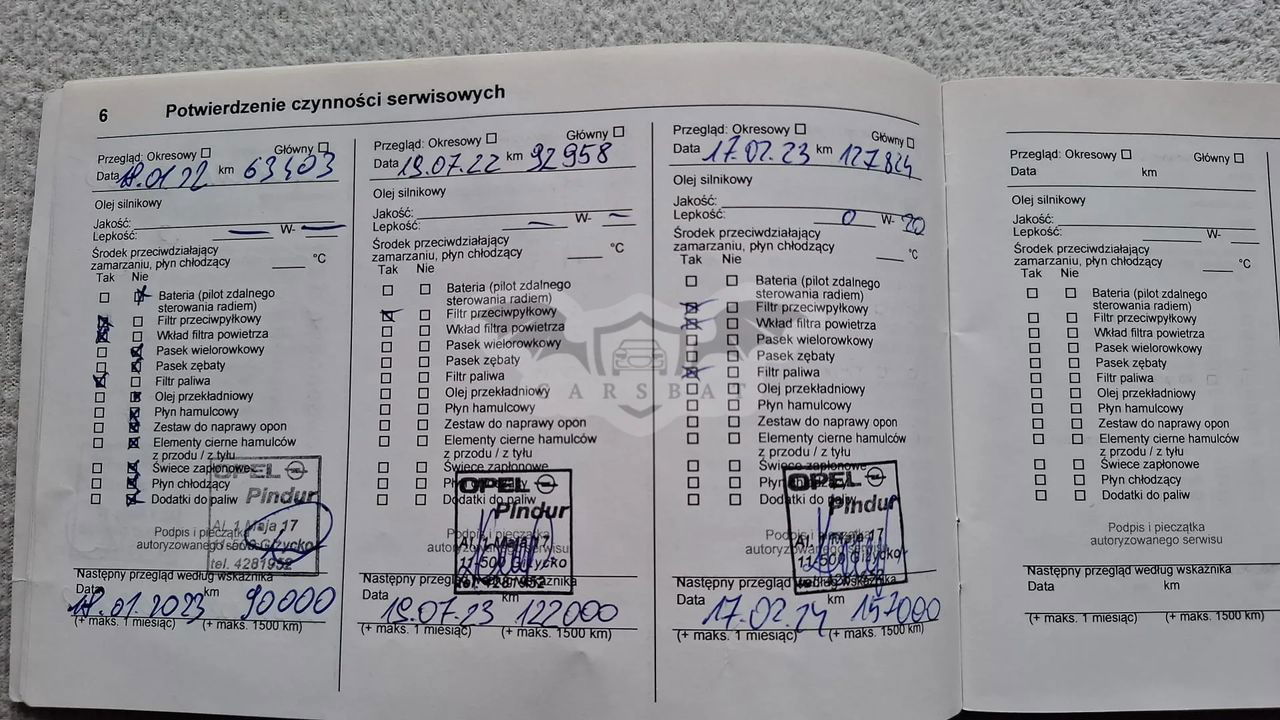 6 Potwierdzenie czynności serwisowych
Przegląd: Okresowy Główny
Data 18.01 22 km 63403
Olej silnikowy
Jakość:
Lepkość: — W- —
Środek przeciwdziałający
zamarzaniu, płyn chłodzący °C
Tak Nie
Bateria (pilot zdalnego
sterowania radiem)
Filtr przeciwpyłkowy
Wkład filtra powietrza
Pasek wielorowkowy
Pasek zębaty
Filtr paliwa
Olej przekładniowy
Płyn hamulcowy
Zestaw do naprawy opon
Elementy cierne hamulców
z przodu / z tyłu
Świece zapłonowe
Płyn chłodzący
Dodatki do paliw
OPEL
Pindur
Al. 1 Maja 17
11-500 Giżycko
tel. 4281952
Podpis i pieczątka
autoryzowanego serwisu
Następny przegląd według wskaźnika
Data km
18.01.2023 90000
(+ maks. 1 miesiąc) (+ maks. 1500 km)
Przegląd: Okresowy Główny
Data 19.07.22 km 92958
Olej silnikowy
Jakość:
Lepkość: — W- —
Środek przeciwdziałający
zamarzaniu, płyn chłodzący °C
Tak Nie
Bateria (pilot zdalnego
sterowania radiem)
Filtr przeciwpyłkowy
Wkład filtra powietrza
Pasek wielorowkowy
Pasek zębaty
Filtr paliwa
Olej przekładniowy
Płyn hamulcowy
Zestaw do naprawy opon
Elementy cierne hamulców
z przodu / z tyłu
Świece zapłonowe
Dodatki do paliw
OPEL
Pindur
Al. 1 Maja 17
11-500 Giżycko
tel. 4281952
Podpis i pieczątka
autoryzowanego serwisu
Następny przegląd według wskaźnika
Data km
19.07.23 122000
(+ maks. 1 miesiąc) (+ maks. 1500 km)
Przegląd: Okresowy Główny
Data 17.02.23 km 127824
Olej silnikowy
Jakość:
Lepkość: 0 W- 20
Środek przeciwdziałający
zamarzaniu, płyn chłodzący °C
Tak Nie
Bateria (pilot zdalnego
sterowania radiem)
Filtr przeciwpyłkowy
Wkład filtra powietrza
Pasek wielorowkowy
Pasek zębaty
Filtr paliwa
Olej przekładniowy
Płyn hamulcowy
Zestaw do naprawy opon
Elementy cierne hamulców
z przodu / z tyłu
Świece zapłonowe
Dodatki do paliw
OPEL
Pindur
Al. 1 Maja 17
11-500 Giżycko
Podpis i pieczątka
autoryzowanego serwisu
Następny przegląd według wskaźnika
Data km
17.02.24 157000
(+ maks. 1 miesiąc) (+ maks. 1500 km)
Przegląd: Okresowy Główny
Data km
Olej silnikowy
Jakość:
Lepkość: W-
Środek przeciwdziałający
zamarzaniu, płyn chłodzący °C
Tak Nie
Bateria (pilot zdalnego
sterowania radiem)
Filtr przeciwpyłkowy
Wkład filtra powietrza
Pasek wielorowkowy
Pasek zębaty
Filtr paliwa
Olej przekładniowy
Płyn hamulcowy
Zestaw do naprawy opon
Elementy cierne hamulców
z przodu / z tyłu
Świece zapłonowe
Płyn chłodzący
Dodatki do paliw
Podpis i pieczątka
autoryzowanego serwisu
Następny przegląd według wskaźnika
Data km
(+ maks. 1 miesiąc) (+ maks. 1500 km)
CARSBAT